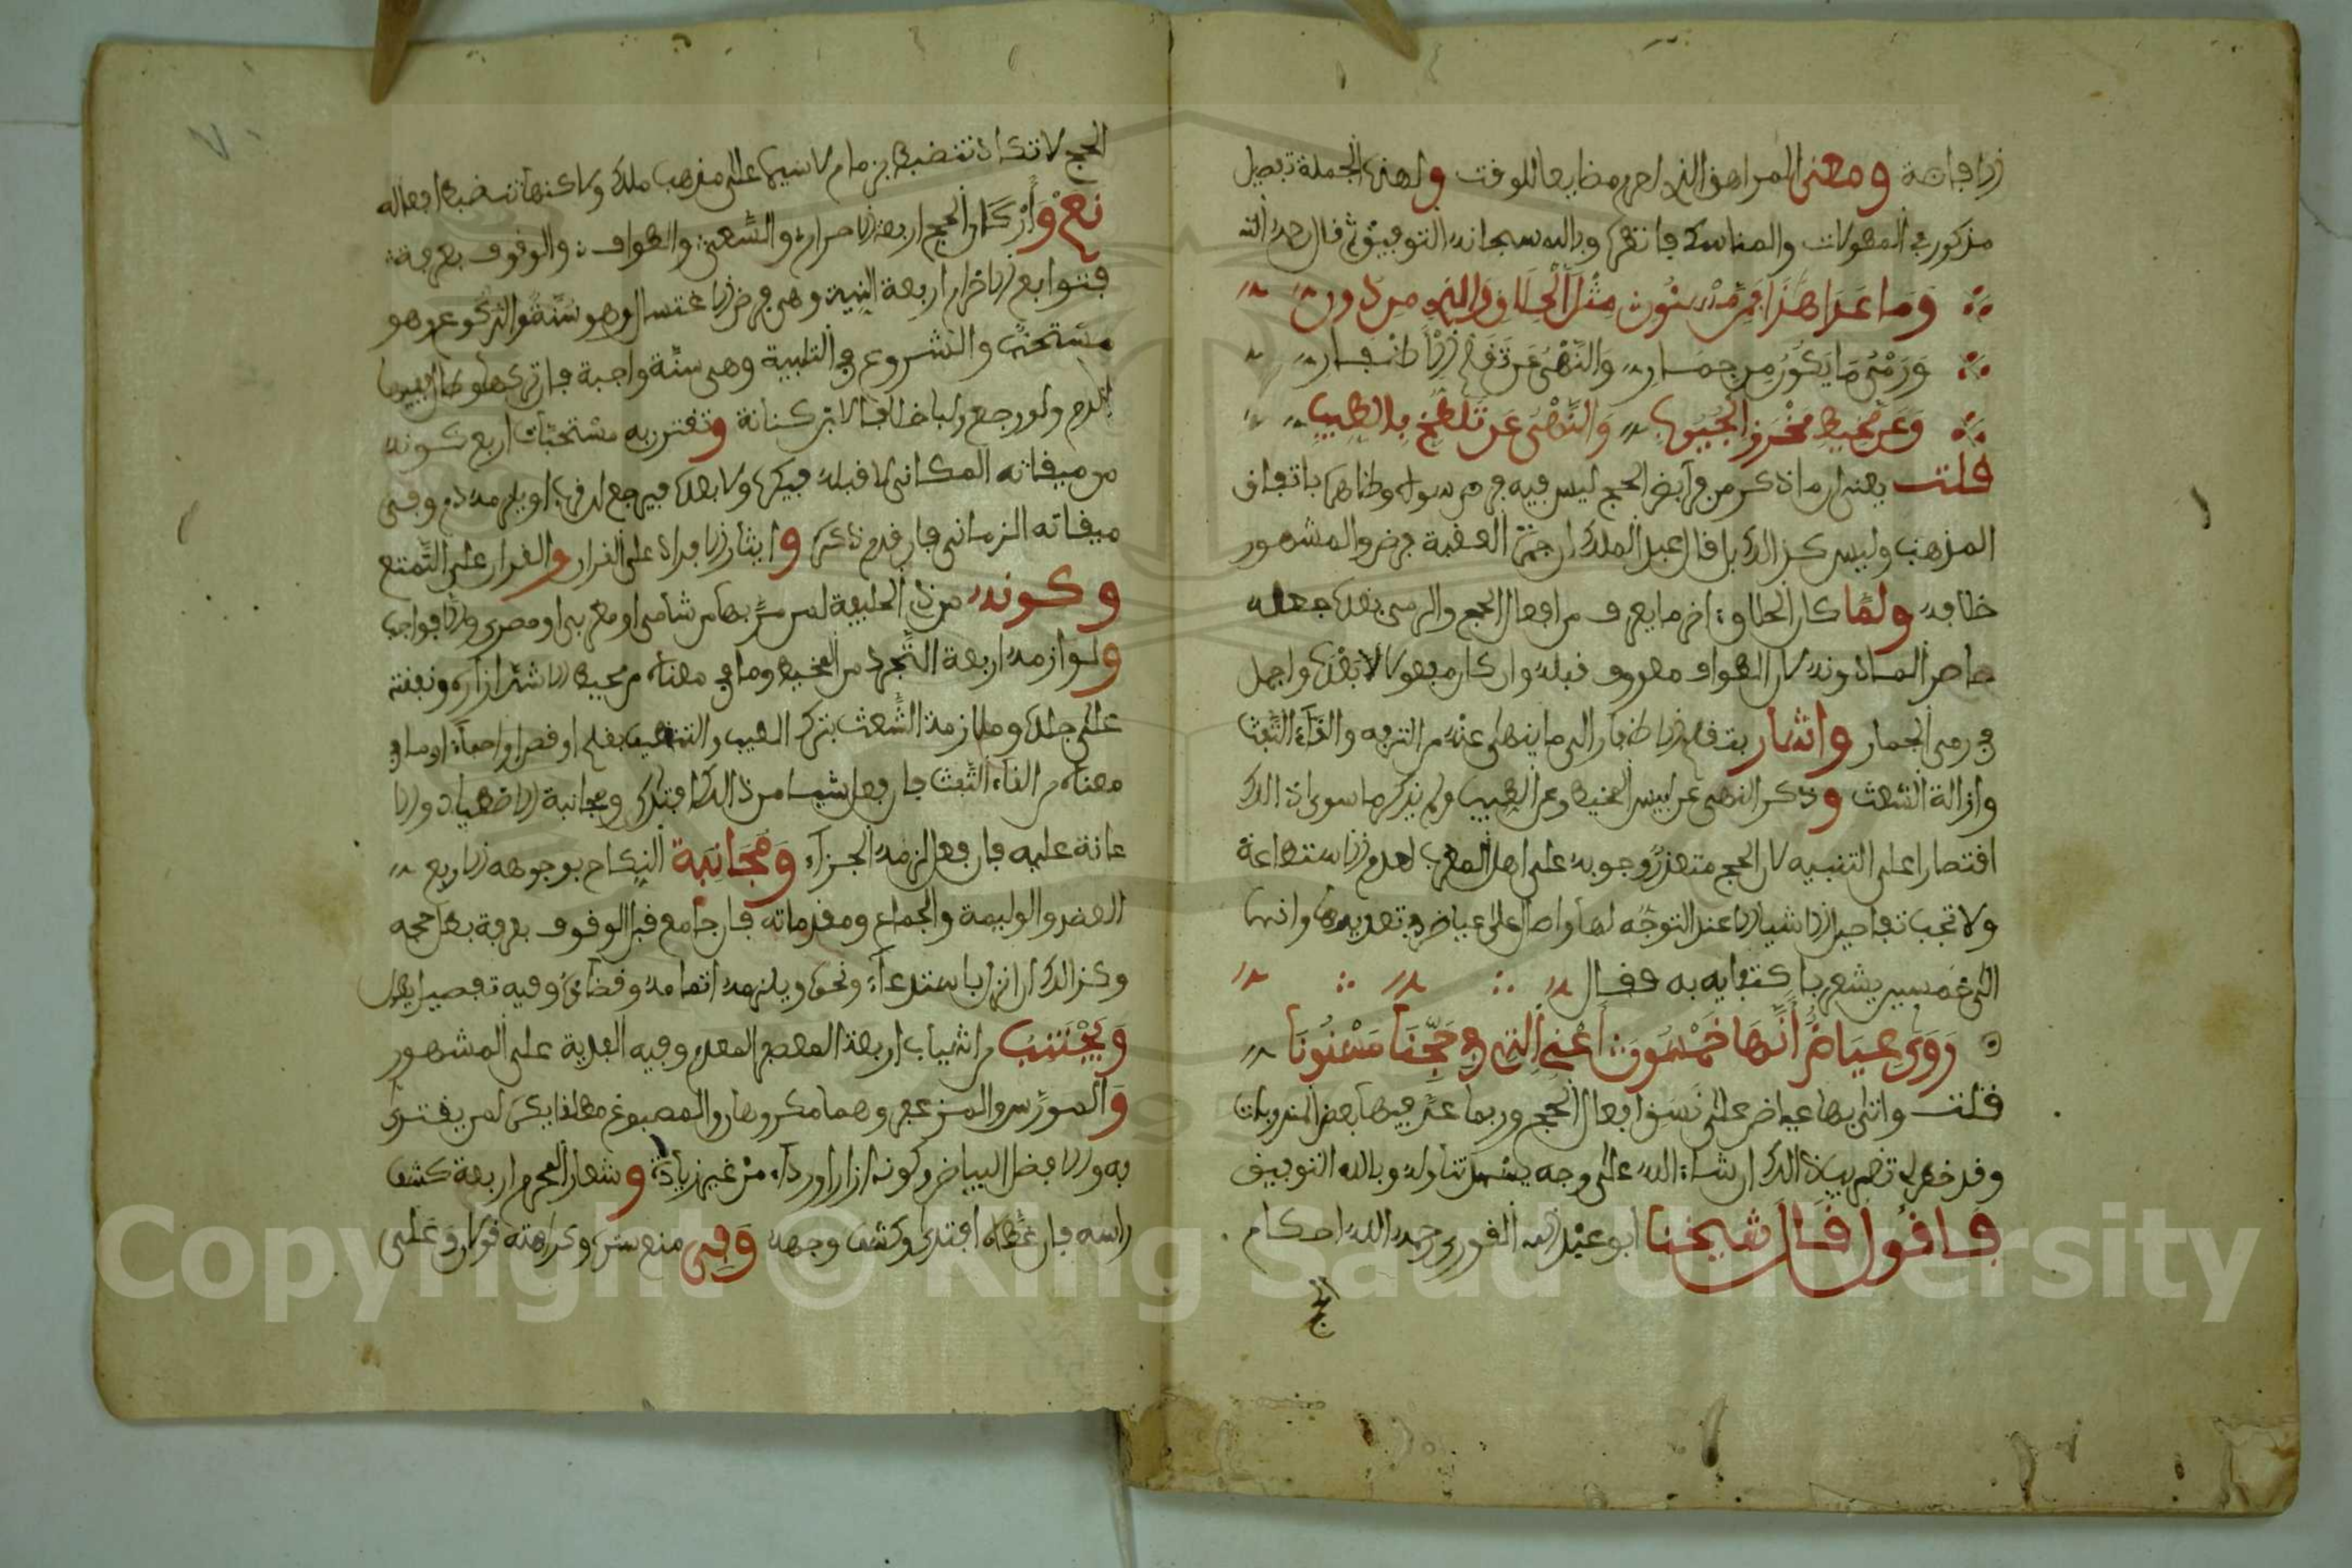 الافاضة ومعنى المراهق الذي احرم مضايفا للوقت ولهذه الجملة تفصيل
مذكور في المطولات والمناسك فانظرها وبالله سبحانه التوفيق ثم قال رحمه الله
وَمَا عَدَا هَذَا فَمَسْنُون مثل الْحِلَاقِ والذي من دون
وَرَمْيُ مَا يَكُونُ مِن جمَار وَالنَّهْيُ عَن تَقْلِيم الْأَظْفار
وَعَن مَخِيطٍ مُحْرَز الجُيُوب وَالنَّهْيُ عَن تَلَطُّخٍ بالطِّيبِ
قلت يعني ان ما ذكر من فرايض الحج ليس فيه فرض سواه وظاهره باتفاق
المذهب وليس كذالك بل قال عبد الملك ان جمرة العقبة فرض والمشهور
خلافه ولمّا كان الحلاق اخر ما يعرف من افعال الحج والرمي بعده جعله
حاصر المسنونه لان الطواف معروف قبله وان كان مفعولا لا بعده واجمل
في رمي الجمار واشار بتقليم الاظفار الى ما ينهى عنه من الترفه والقاء التفث
وازالة الشعث وذكر النهي عن لبس المخيط وعن الطيب ولم يذكر ما سوى ذالك
اقتصارا على التنبيه لان الحج متعذر وجوبه على اهل المغرب لعدم الاستطاعة
ولا تجب تفاصيل الاشيا الا عند التوجّه لها واحال على عياض في تعديدها وانها
الى خمسين يشعر باكتفايه به فقال
رَوَى عِيَاضُ أَنَّهَا خَمْسُونَ أَعْنِي الَّتِي فِي حَجِّنَا مَسْنُونَا
قلت واتى بها عياض على نسق افعال الحج وربما عدّ فيها بعض المندوبات
وقد خطر لي نظم بيان ذالك ان شاء الله على وجه يسهل تناوله وبالله التوفيق
فاقول قال شيخنا ابو عبد الله القوري رحمه الله احكام
الحج
الحج لا تكاد تنضبط بزمام لا سيما على مذهب ملك ولاكنها تنضبط افعاله
نعم وَأَرْكَان الحج اربعة الاحرام والسَّعي والطواف والوقوف بعرفة
فتوابع الاحرام اربعة النية وهي فرض الاغتسال وهو سُنّة والركوع وهو
مستحبّ والشروع في التلبية وهي سنّة واجبة فان تركها وطال فيها
الدم ولو رجع ولبا خلافا لابن كنانة وتقترن به مستحبّات اربع كونه
من ميقاته المكاني لا قبله فيكره ولا بعده فيرجع له او يلزمه دم وفي
ميقاته الزماني فان قدم ذكره وايثار الافراد على القران والقران على التّمتع
وكونه من ذي الحليفة لمن مرّ بها من شامي او مغربي او مصري والا فواجب
ولوازمه اربعة التّجرد من المخيط وما في معناه من محيط الا شد ازاره ونفقته
على جلده وملازمة الشّعث بترك الطيب والتنظيف بقلم او قص او احماء او ما في
معناه من القاء التفث فان فعل شيئا من ذالك افتدى ومجانبة الاصطياد والا
عانة عليه فان فعل لزمه الجزاء وَمُجَانَبَة النكاح بوجوهه الاربع
العقد والوليمة والجماع ومقدماته فان جامع قبل الوقوف بعرفة بطل حجه
وكذالك ان انزل باستدعاء ونحوه ويلزمه اتمامه وقضاؤه وفيه تفصيل يطول
وَيَجْتَنِب من الثياب اربعة المعصفر المفدم وفيه الفدية على المشهور
وَالمورّس والمزعفر وهما مكروهان والمصبوغ مطلقا يكره لمن يقتدى
به والافضل البياض وكونه ازارا ورداء من غير زيادة وشعار المحرم اربعة كشف
راسه فان غطّاه افتدى وكشف وجهه وَفِي منع ستره وكراهته قولان وَعلى